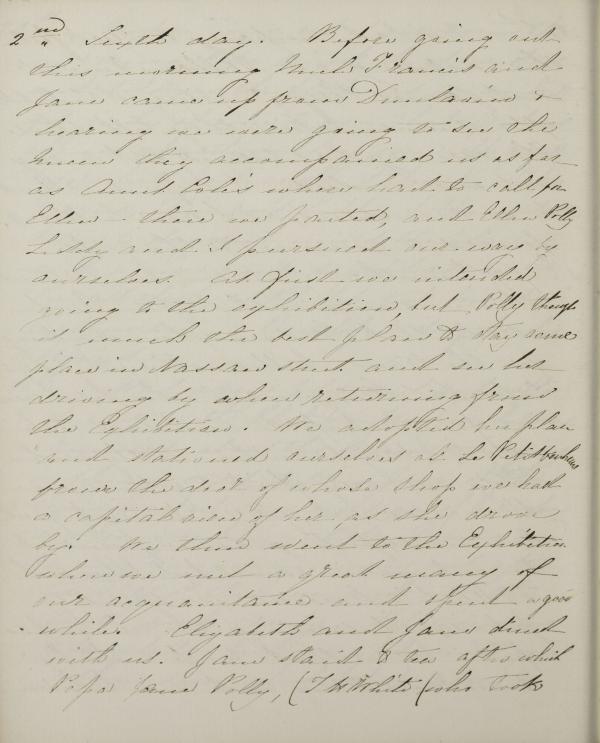 2nd Sixth day. Before going out
this morning Uncle Francis and
Jane came up from Dunlavin &
hearing we were going to see the
Queen they accompanied us as far
as Aunt Cole's where had to call for
Ellen - there we parted, and Ellen Polly
Lydy and I pursued our way by
ourselves. At first we intended
going to the exhibition, but Polly thought
it much the best plan to stay some
place in Nassau street and see her
driving by when returning from
the Exhibition. We adopted her plan
and stationed ourselves at Le Petit
from the door of whose shop we had
a capital view of her as she drove
by. We then went to the Exhibition
where we met a great many of
our acquaintance and spent a good
while. Elizabeth and Jane dined
with us. Jane staid to tea after which
Papa Jane Polly, (T H White (who took